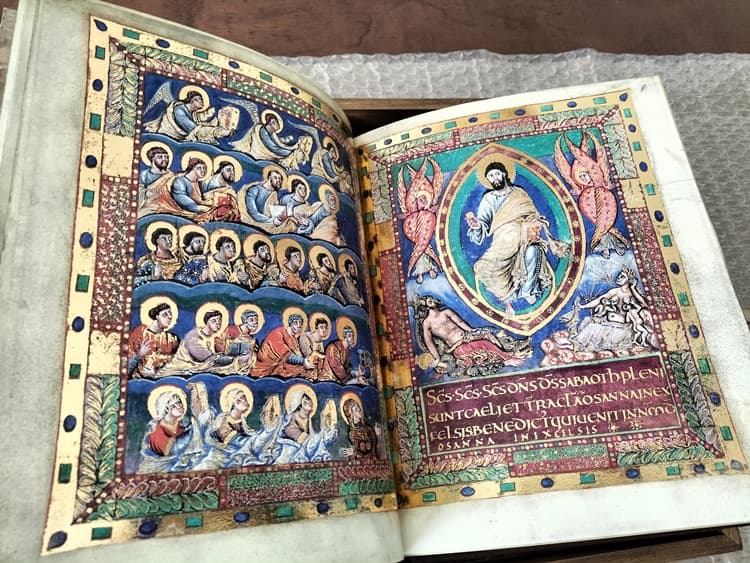 SC̄S· SC̄S· SC̄S DN̄S D̄S SABAOTH PLENI
SUNT CAELI ET T̄RA GL̄A OSANNA IN EX
CELSIS BENEDICT' QUI UENIT IN N̄M D̄
OSANNA IN EXCELSIS